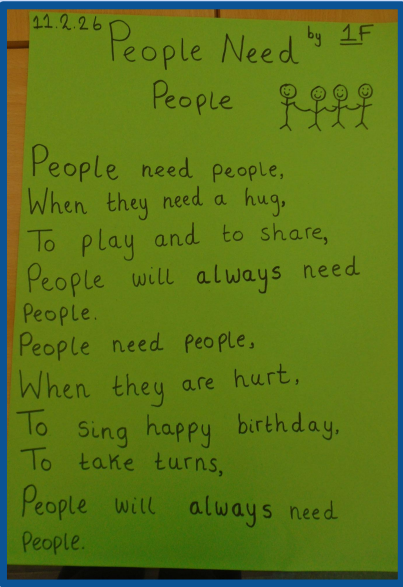 11.2.26
People Need by 1F
People
People need people,
When they need a hug,
To play and to share,
People will always need
people.
People need people,
When they are hurt,
To sing happy birthday,
To take turns,
People will always need
people.